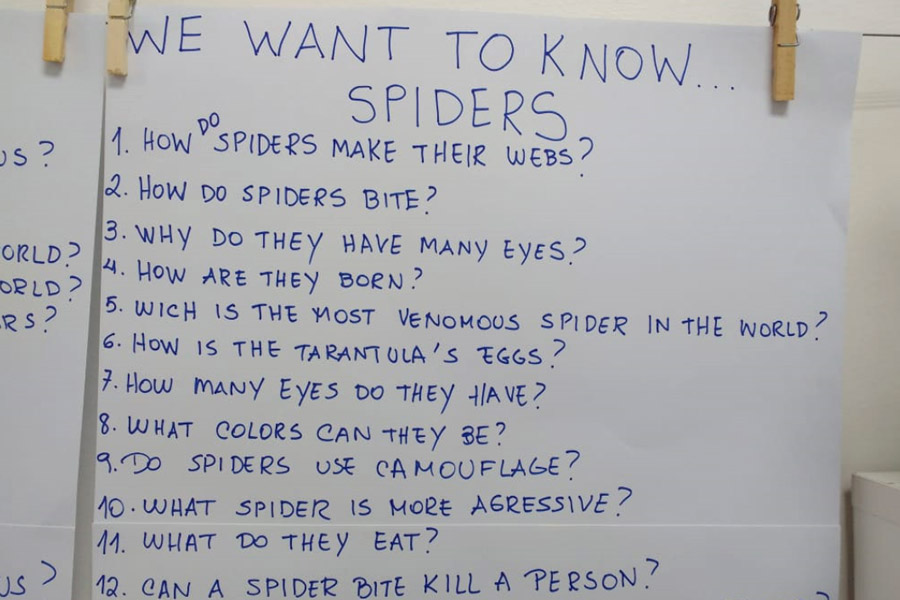 WE WANT TO KNOW...
SPIDERS
1. HOW DO SPIDERS MAKE THEIR WEBS?
2. HOW DO SPIDERS BITE?
3. WHY DO THEY HAVE MANY EYES?
4. HOW ARE THEY BORN?
5. WICH IS THE MOST VENOMOUS SPIDER IN THE WORLD?
6. HOW IS THE TARANTULA'S EGGS?
7. HOW MANY EYES DO THEY HAVE?
8. WHAT COLORS CAN THEY BE?
9. DO SPIDERS USE CAMOUFLAGE?
10. WHAT SPIDER IS MORE AGRESSIVE?
11. WHAT DO THEY EAT?
12. CAN A SPIDER BITE KILL A PERSON?